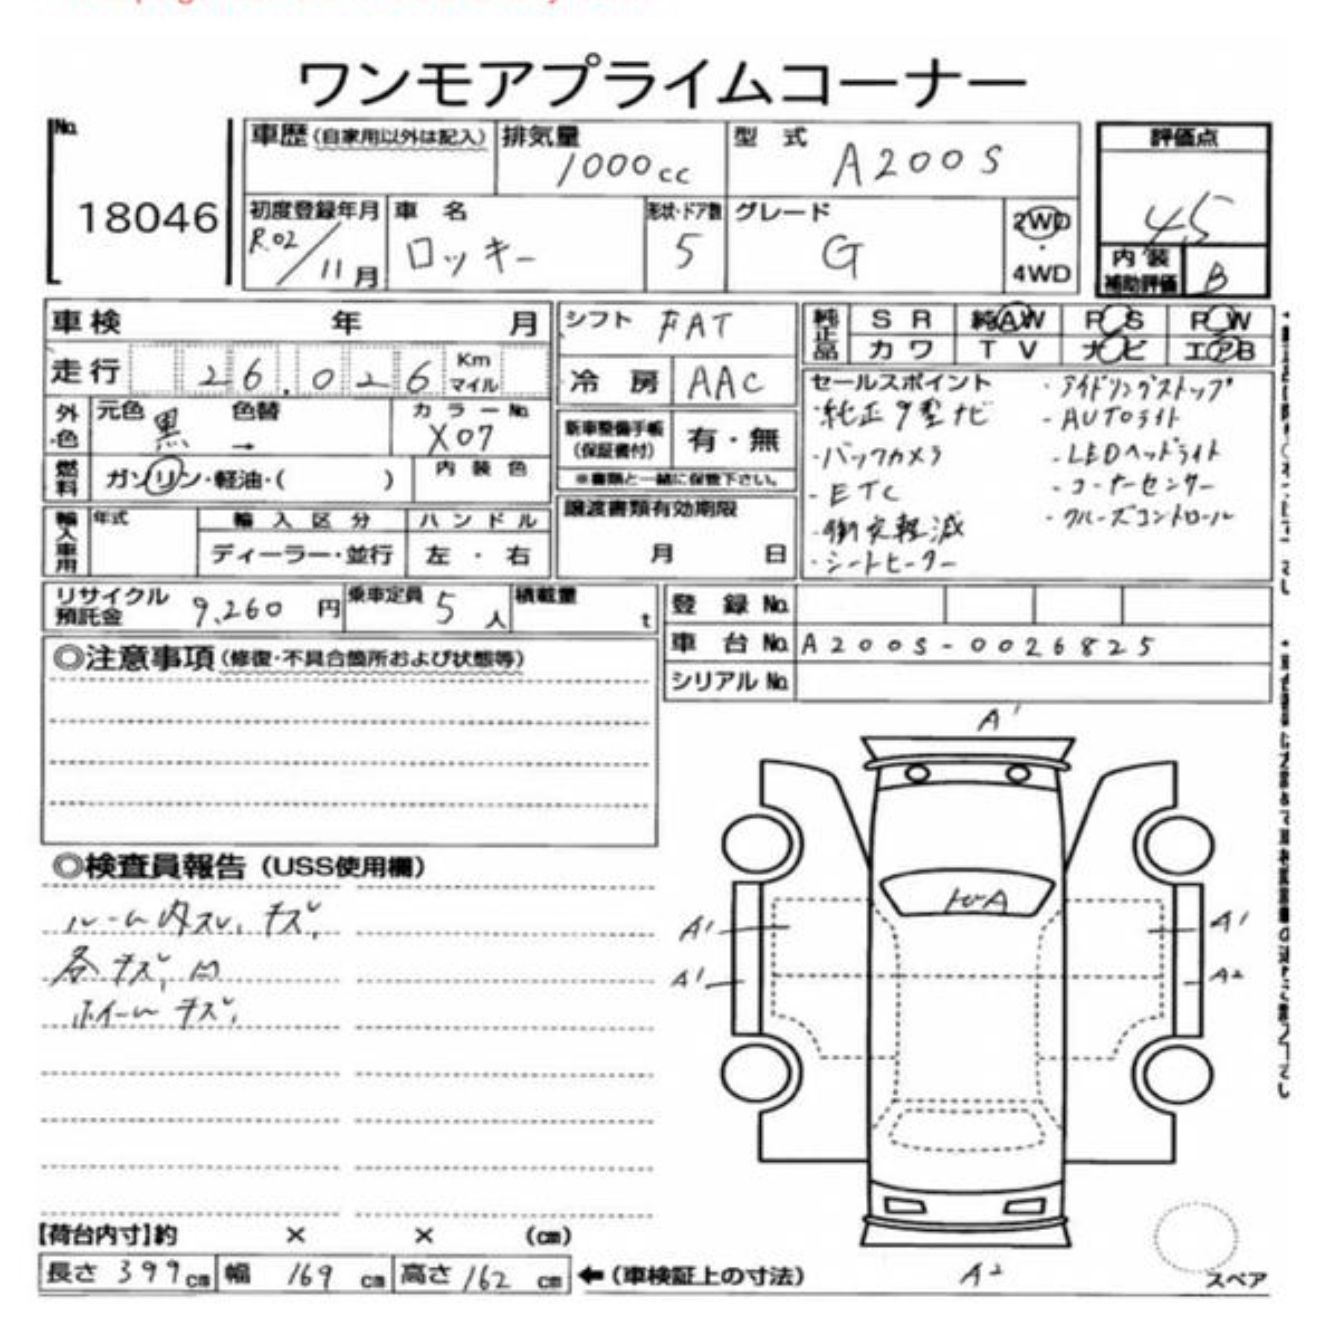 ワンモアプライムコーナー
No.
18046
車歴(自家用以外は記入)
排気量
1000cc
型式
A200S
評価点
4.5
初度登録年月
R.02/11月
車名
ロッキー
形状・ドア数
5
グレード
G
2WD
・
4WD
内装
補助評価
B
車検 年 月
シフト FAT
純正品
SR 純AW PS PW
カワ TV ナビ エアB
走行 26.026 Km マイル
冷房 AAC
外色
元色 黒
色替 →
カラーNo. X07
新車整備手帳
(保証書付)
有・無
※書類と一緒に保管下さい。
燃料
ガソリン・軽油・( )
内装色
輸入車用
年式
輸入区分
ディーラー・並行
ハンドル
左・右
譲渡書類有効期限
月 日
セールスポイント
・純正9型ナビ
・バックカメラ
・ETC
・衝突軽減
・シートヒーター
・アイドリングストップ
・AUTOライト
・LEDヘッドライト
・コーナーセンサー
・クルーズコントロール
リサイクル
預託金
9,260円
乗車定員 5人
積載量 t
登録No.
車台No. A200S-0026825
シリアルNo.
◎注意事項(修復・不具合箇所および状態等)
◎検査員報告(USS使用欄)
ルーム内スレ、キズ、
各キズ、凹
ホイールキズ、
A1
A1
A1
A1
A2
A2
スペア
[荷台内寸]約 × × (cm)
長さ 399cm
幅 169cm
高さ 162cm
←(車検証上の寸法)